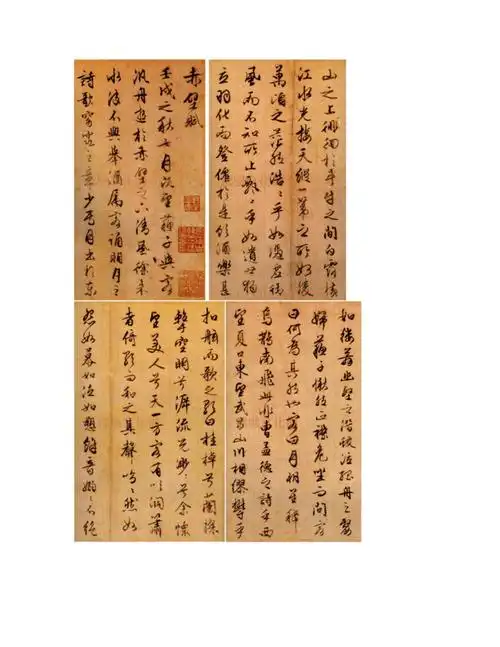 赤壁賦
壬戌之秋七月既望蘇子與客
汎舟遊於赤壁之下清風徐来
水波不興舉酒属客誦明月之
詩歌窈窕之章少焉月出於東
山之上徘徊於斗牛之間白露横
江水光接天縱一葦之所如凌
萬頃之茫然浩〻乎如馮虚御
風而不知所止飄〻乎如遺世獨
立羽化而登僊於是飲酒樂甚
扣舷而歌之歌曰桂棹兮蘭槳
擊空明兮泝流光渺〻兮余懷
望美人兮天一方客有吹洞簫
者倚歌而和之其聲嗚〻然如
怨如慕如泣如愬餘音嫋〻不絶
如縷舞幽壑之潜蛟泣孤舟之嫠
婦蘇子愀然正襟危坐而問客
曰何為其然也客曰月明星稀
烏鵲南飛此非曹孟德之詩乎西
望夏口東望武昌山川相繆鬱乎